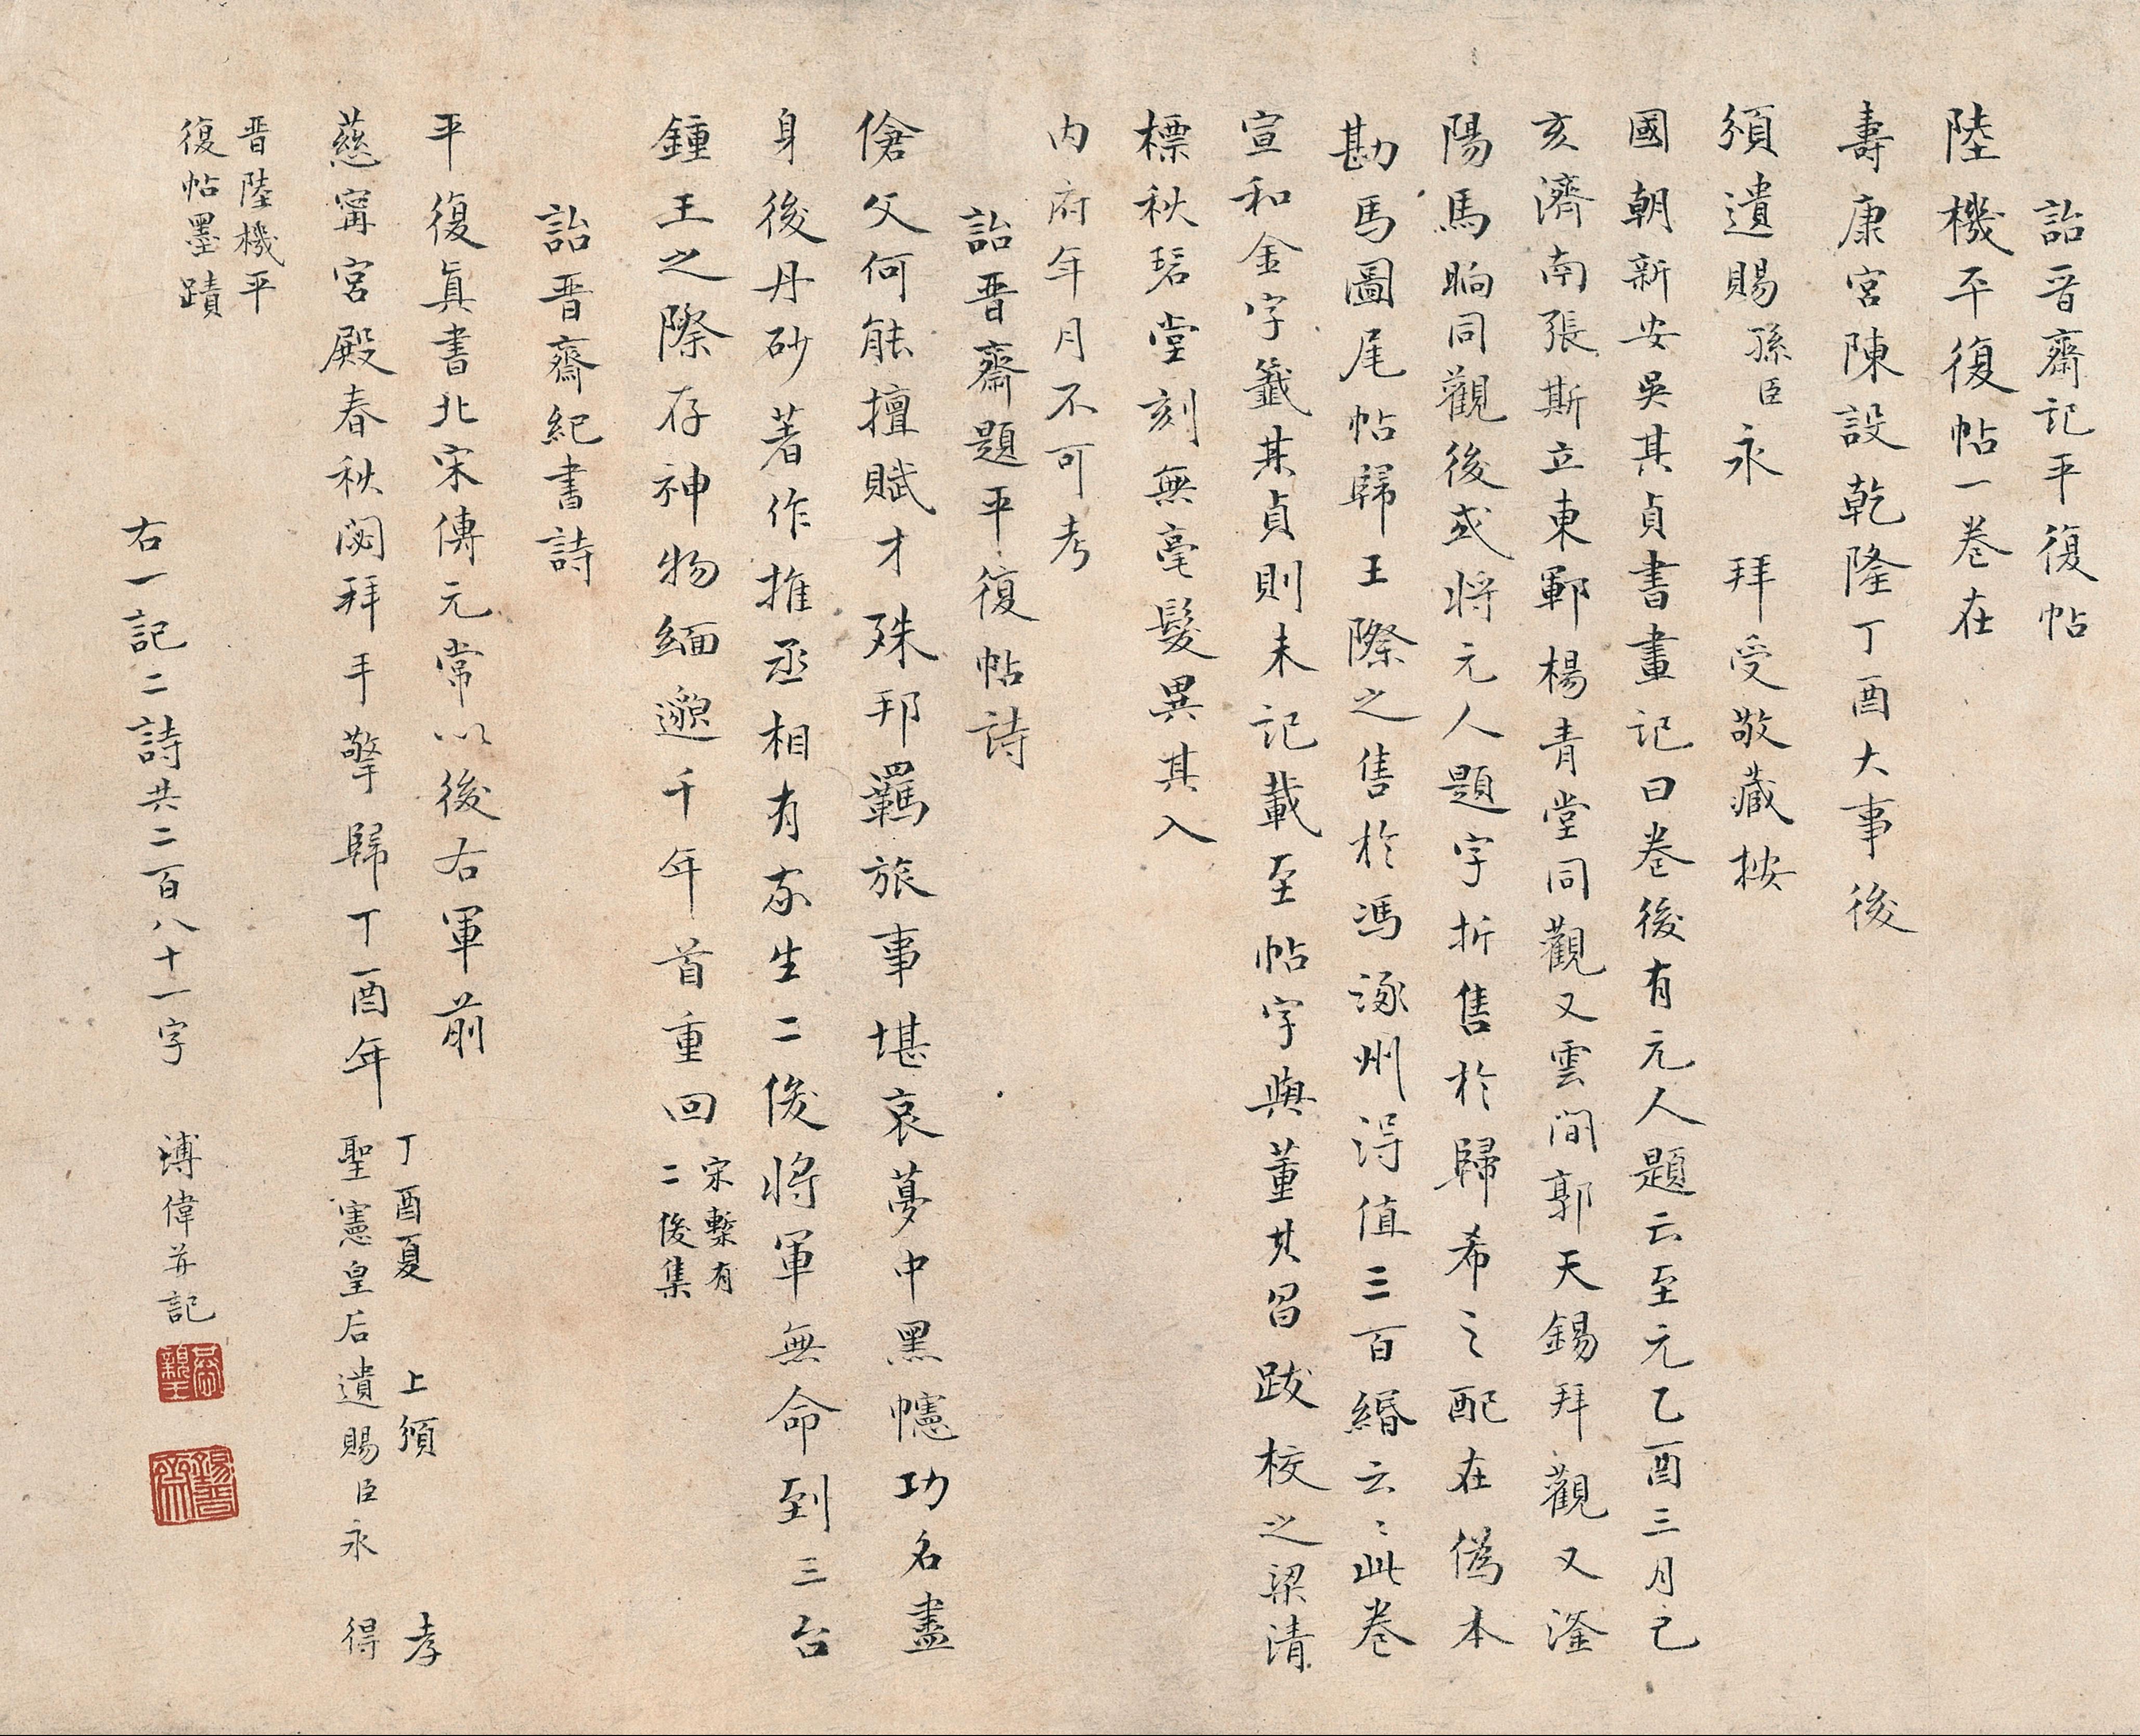 詒晉齋記平復帖
陸機平復帖一卷在
壽康宮陳設乾隆丁酉大事後
頒遺賜孫臣永 拜受敬藏按
國朝新安吳其貞書畫記曰卷後有元人題云至元乙酉三月己
亥濟南張斯立東鄆楊青堂同觀又雲間郭天錫拜觀又滏
陽馬昫同觀後或將元人題字折售於歸希之配在偽本
勘馬圖尾帖歸王際之售於馮涿州得值三百緡云〻此卷
宣和金字籤其貞則未記載至帖字與董其昌跋校之梁清
標秋碧堂刻無毫髮異其入
內府年月不可考
詒晉齋題平復帖詩
傖父何能擅賦才殊邦羈旅事堪哀夢中黑幰功名盡
身後丹砂著作推丞相有家生二俊將軍無命到三台
鍾王之際存神物緬邈千年首重回
宋槧有
二俊集
詒晉齋紀書詩
平復真書北宋傳元常以後右軍前
慈甯宮殿春秋閟拜手擎歸丁酉年
丁酉夏 上頒 孝
聖憲皇后遺賜臣永 得
晉陸機平
復帖墨蹟
右一記二詩共二百八十一字 溥偉并記
恭親王
錫晉齋